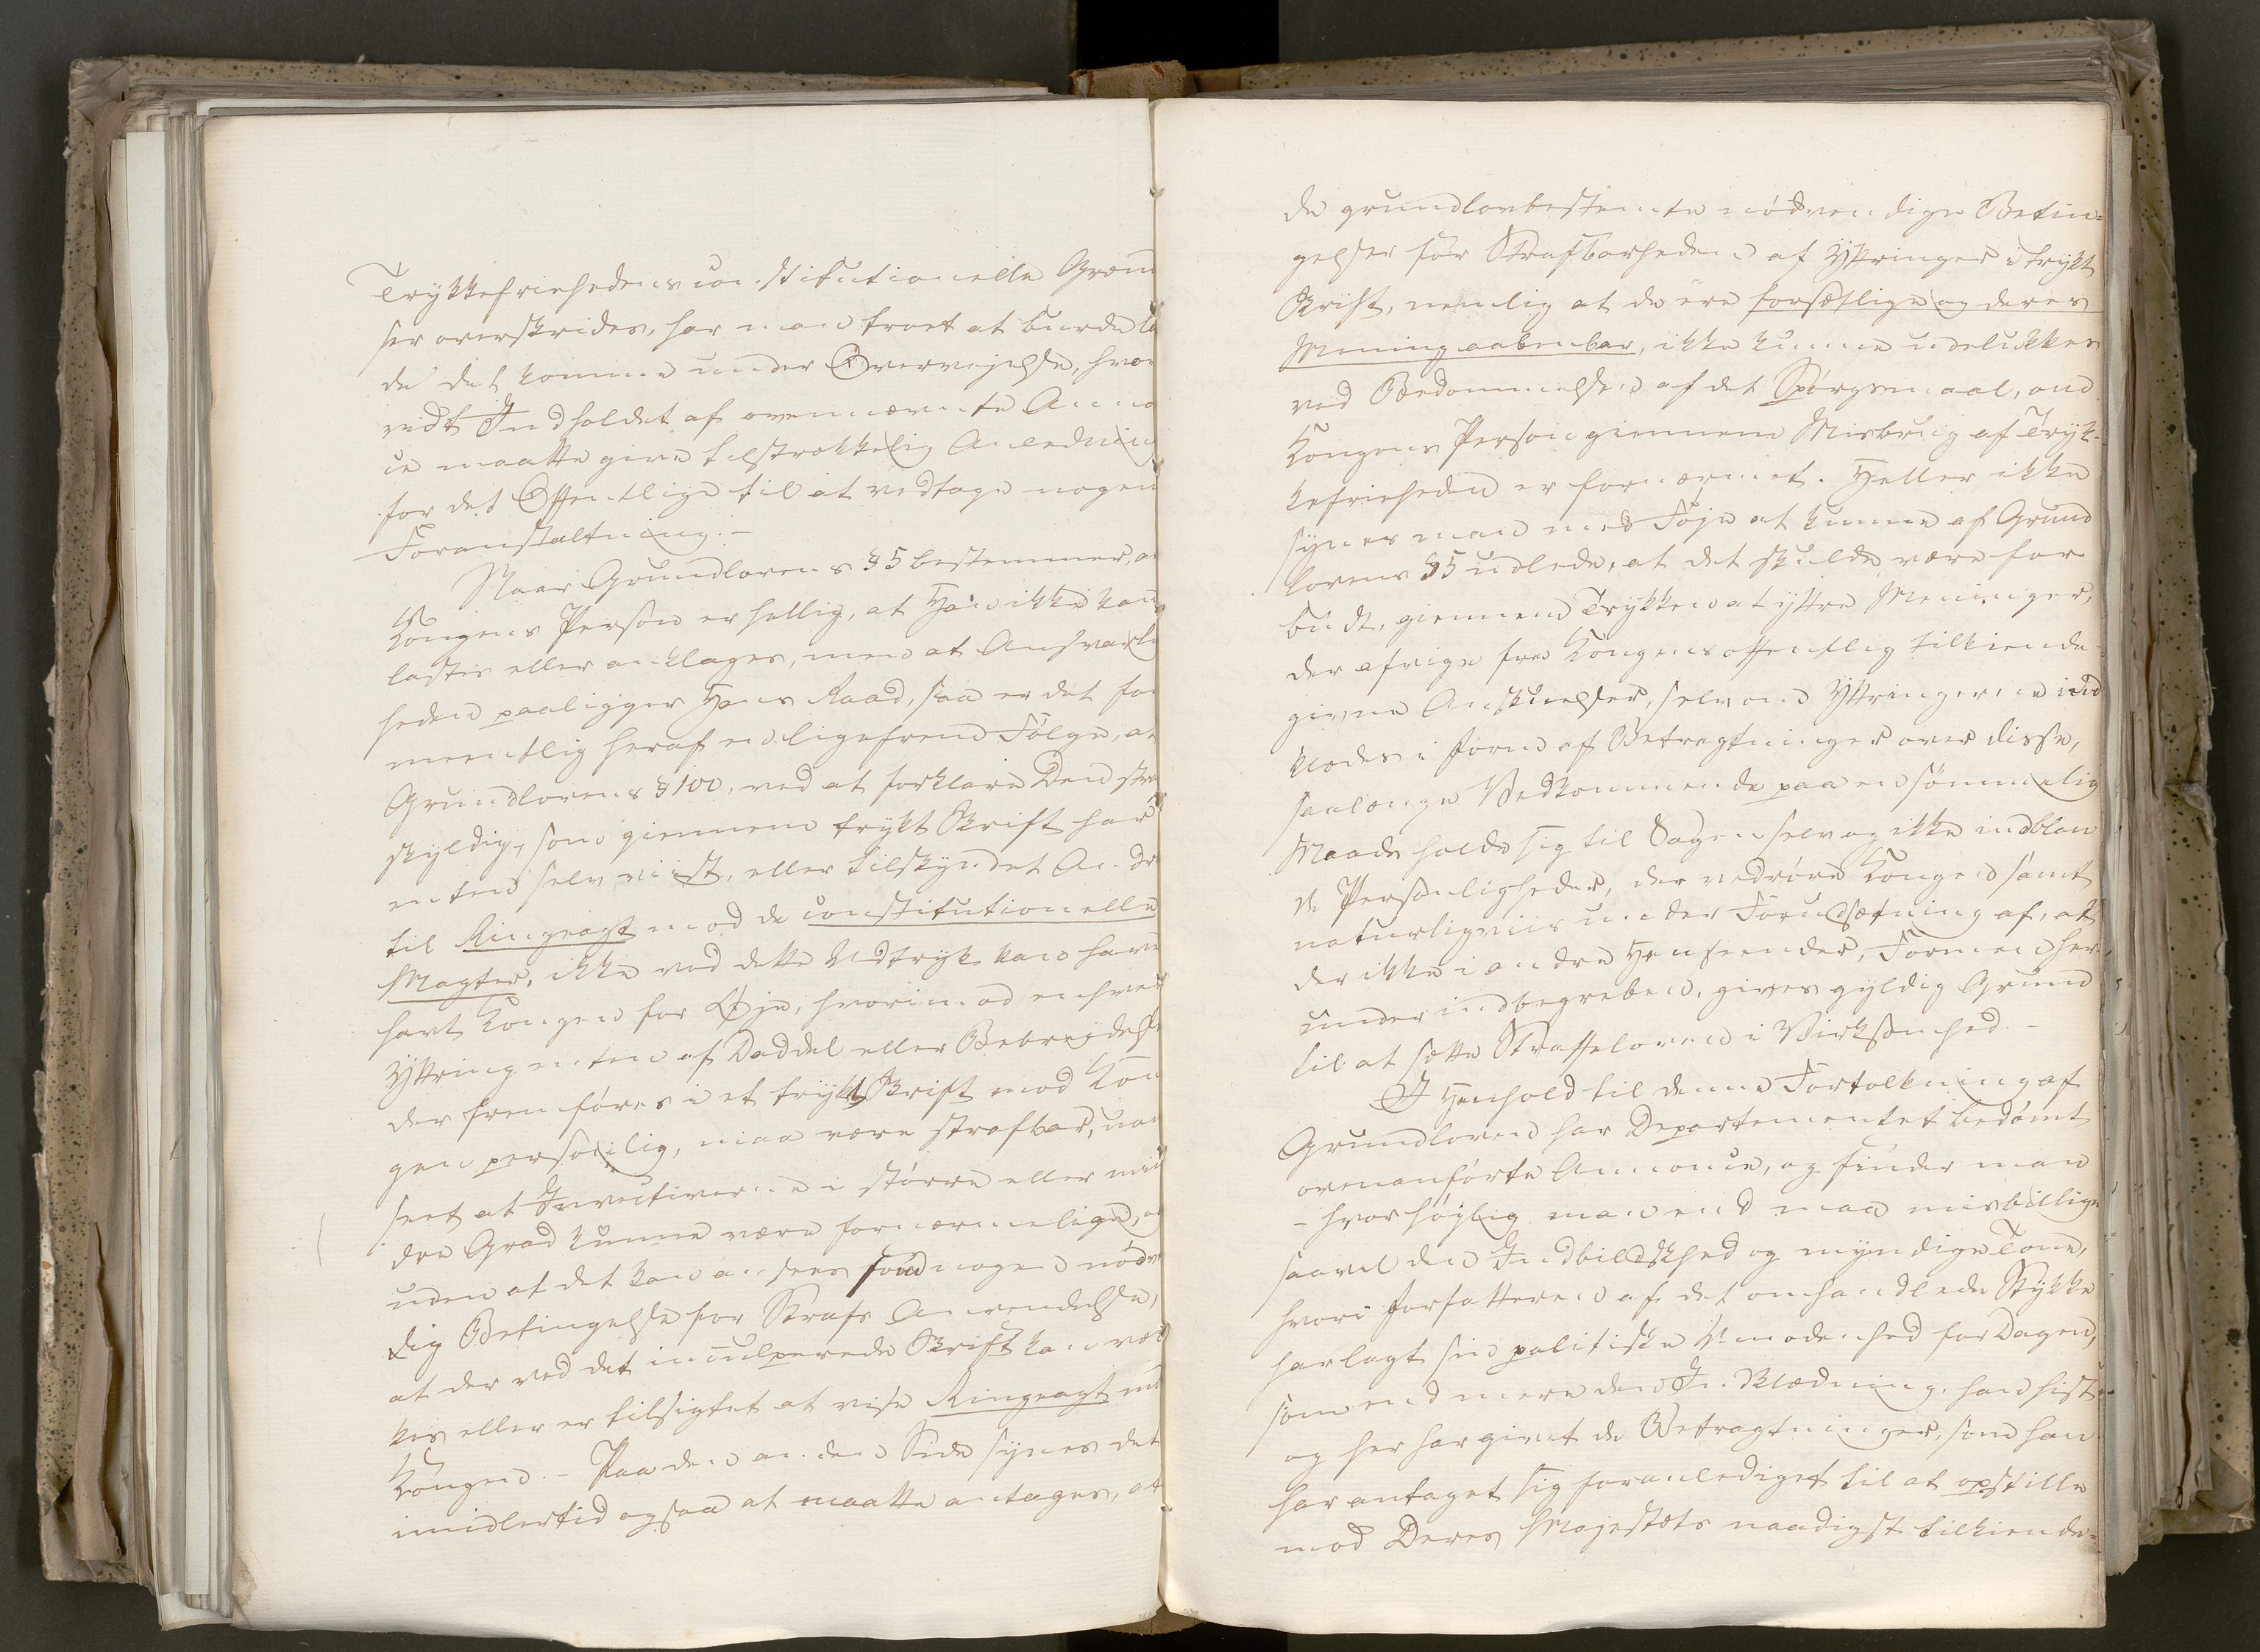 Trykkefriehedens constitutionelle Græn
ser overskrides, har man troet at burde la
de det komme under Overvejelse, hvor
vidt Indholdet af ovennævnte Anno
ce maatte give tilstrækkelig Anledning
for det Offentlige til at vedtage nogen
Foranstaltning. –
Naar Grundlovens § 5 bestemmer, a
Kongens Person er hellig, at Han ikke kan
lastes eller anklages, men at Ansvarli
heden paaligger Hans Raad, saa er det for
meentlig heraf en ligefrem Følge, at
Grundlovens § 100, ved at forklare Den stra
skyldig, som giennem trykt Skrift har
enten selv viist, eller tilskyndet Andre
til Ringeagt mod de constitutionelle
Magter, ikke ved dette Udtryk kan have
havt Kongen for Øje, hvorimod enhver
Yttring enten af Daddel eller Bebrejdelse
der fremføres i et trykt Skrift mod Kon
gen personlig, maa være strafbar, uan
seet at Invectiverne i større eller min
dre Grad kunne være fornærmelige, og
uden at det kan ansees som nogen nødv
dig Betingelse for Strafs Anvendelse,
at der ved det inculperede Skrift kan væk
kes eller er tilsigtet at vise Ringeagt mod
Kongen. – Paa den anden Side synes det
imidlertid ogsaa at maatte antages, at
de grundlovbestemte nødvendige Betin=
gelser for Strafbarheden af Yttringer i trykt
Skrift, nemlig at de ere forsætlige og deres
Mening aabenbar, ikke kunne udelukkes
ved Bedømmelsen af det Spørgsmaal, om
Kongens Person giennem Misbrug af Tryk-
kefrieheden er fornærmet. Heller ikke
synes man med Føje at kunne af Grund
lovens § 5 udlede, at det skulde være for
budt, giennem Trykken at yttre Meninger,
der afvige fra Kongens offentlig tilkiende-
givne Anskuelser, selv om Yttringerne ind
klædes i Form af Betragtninger over disse,
saalænge Vedkommende paa en sømmelig
Maade holde sig til Sagen selv og ikke indblan
de Personligheder, der vedrøre Kongen samt
naturligviis under Forudsætning af, at
der ikke i andre Henseender, Formen her
under indbegreben, gives gyldig Grund
til at sætte Straffeloven i Virksomhed. –
I Henhold til denne Fortolkning af
Grundloven har Departementet bedømt
ovenanførte Annonce, og finder man
– hvor høylig man end maa misbillige
saavel den Indbildskhed og myndige Tone,
hvori Forfatteren af det omhandlede Stykke
har lagt sin politiske Umodenhed for Dagen,
som end mere den Indklædning, han hist
og her har givet de Betragtninger, som han
har antaget sig foranlediget til at opstille
mod Deres Majestæts naadigst tilkiende=